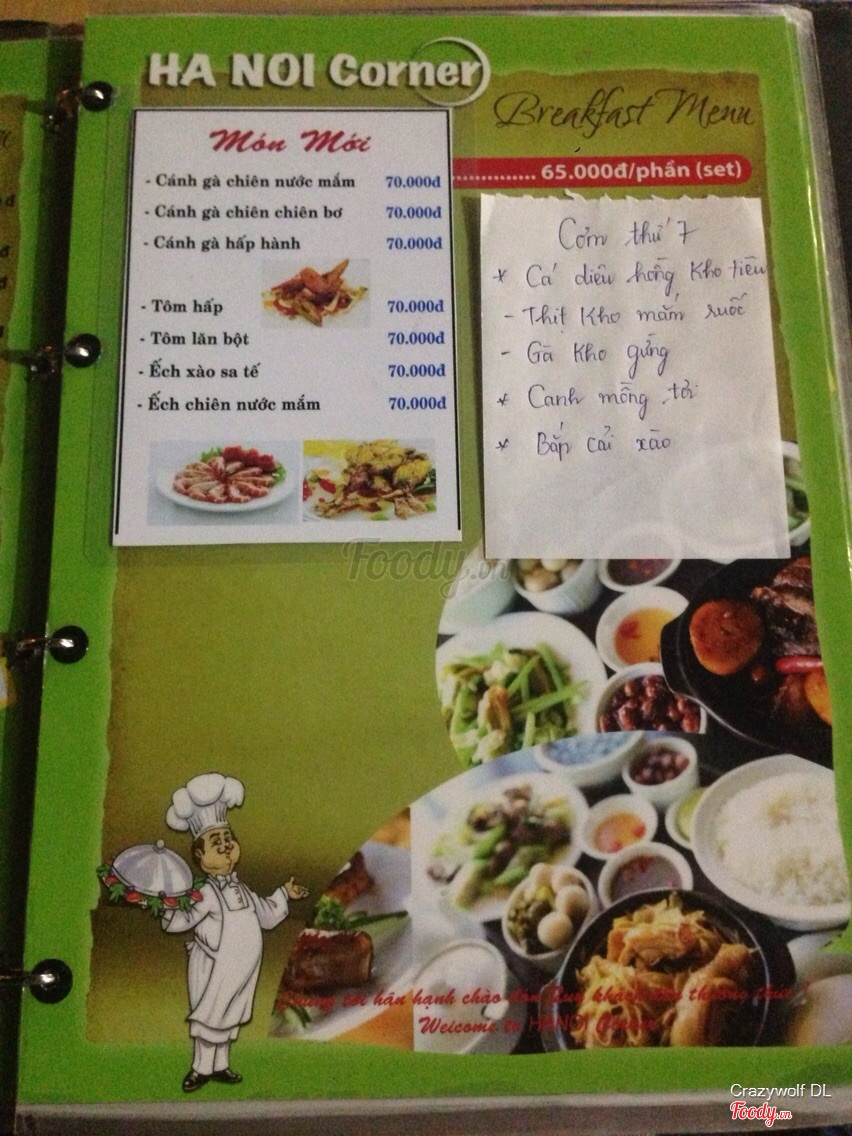 HA NOI Corner
Breakfast Menu
Món Mới
- Cánh gà chiên nước mắm 70.000đ
- Cánh gà chiên chiên bơ 70.000đ
- Cánh gà hấp hành 70.000đ
- Tôm hấp 70.000đ
- Tôm lăn bột 70.000đ
- Ếch xào sa tế 70.000đ
- Ếch chiên nước mắm 70.000đ
.............. 65.000đ/phần (set)
Cơm thứ 7
* Cá diêu hồng kho tiêu
- Thịt kho mắm ruốc
- Gà kho gừng
* Canh mồng tơi
* Bắp cải xào
Foody.vn
Chúng tôi hân hạnh chào đón Quý khách đến thưởng thức !
Welcome to HANOI Corner !
Crazywolf DL
Foody.vn